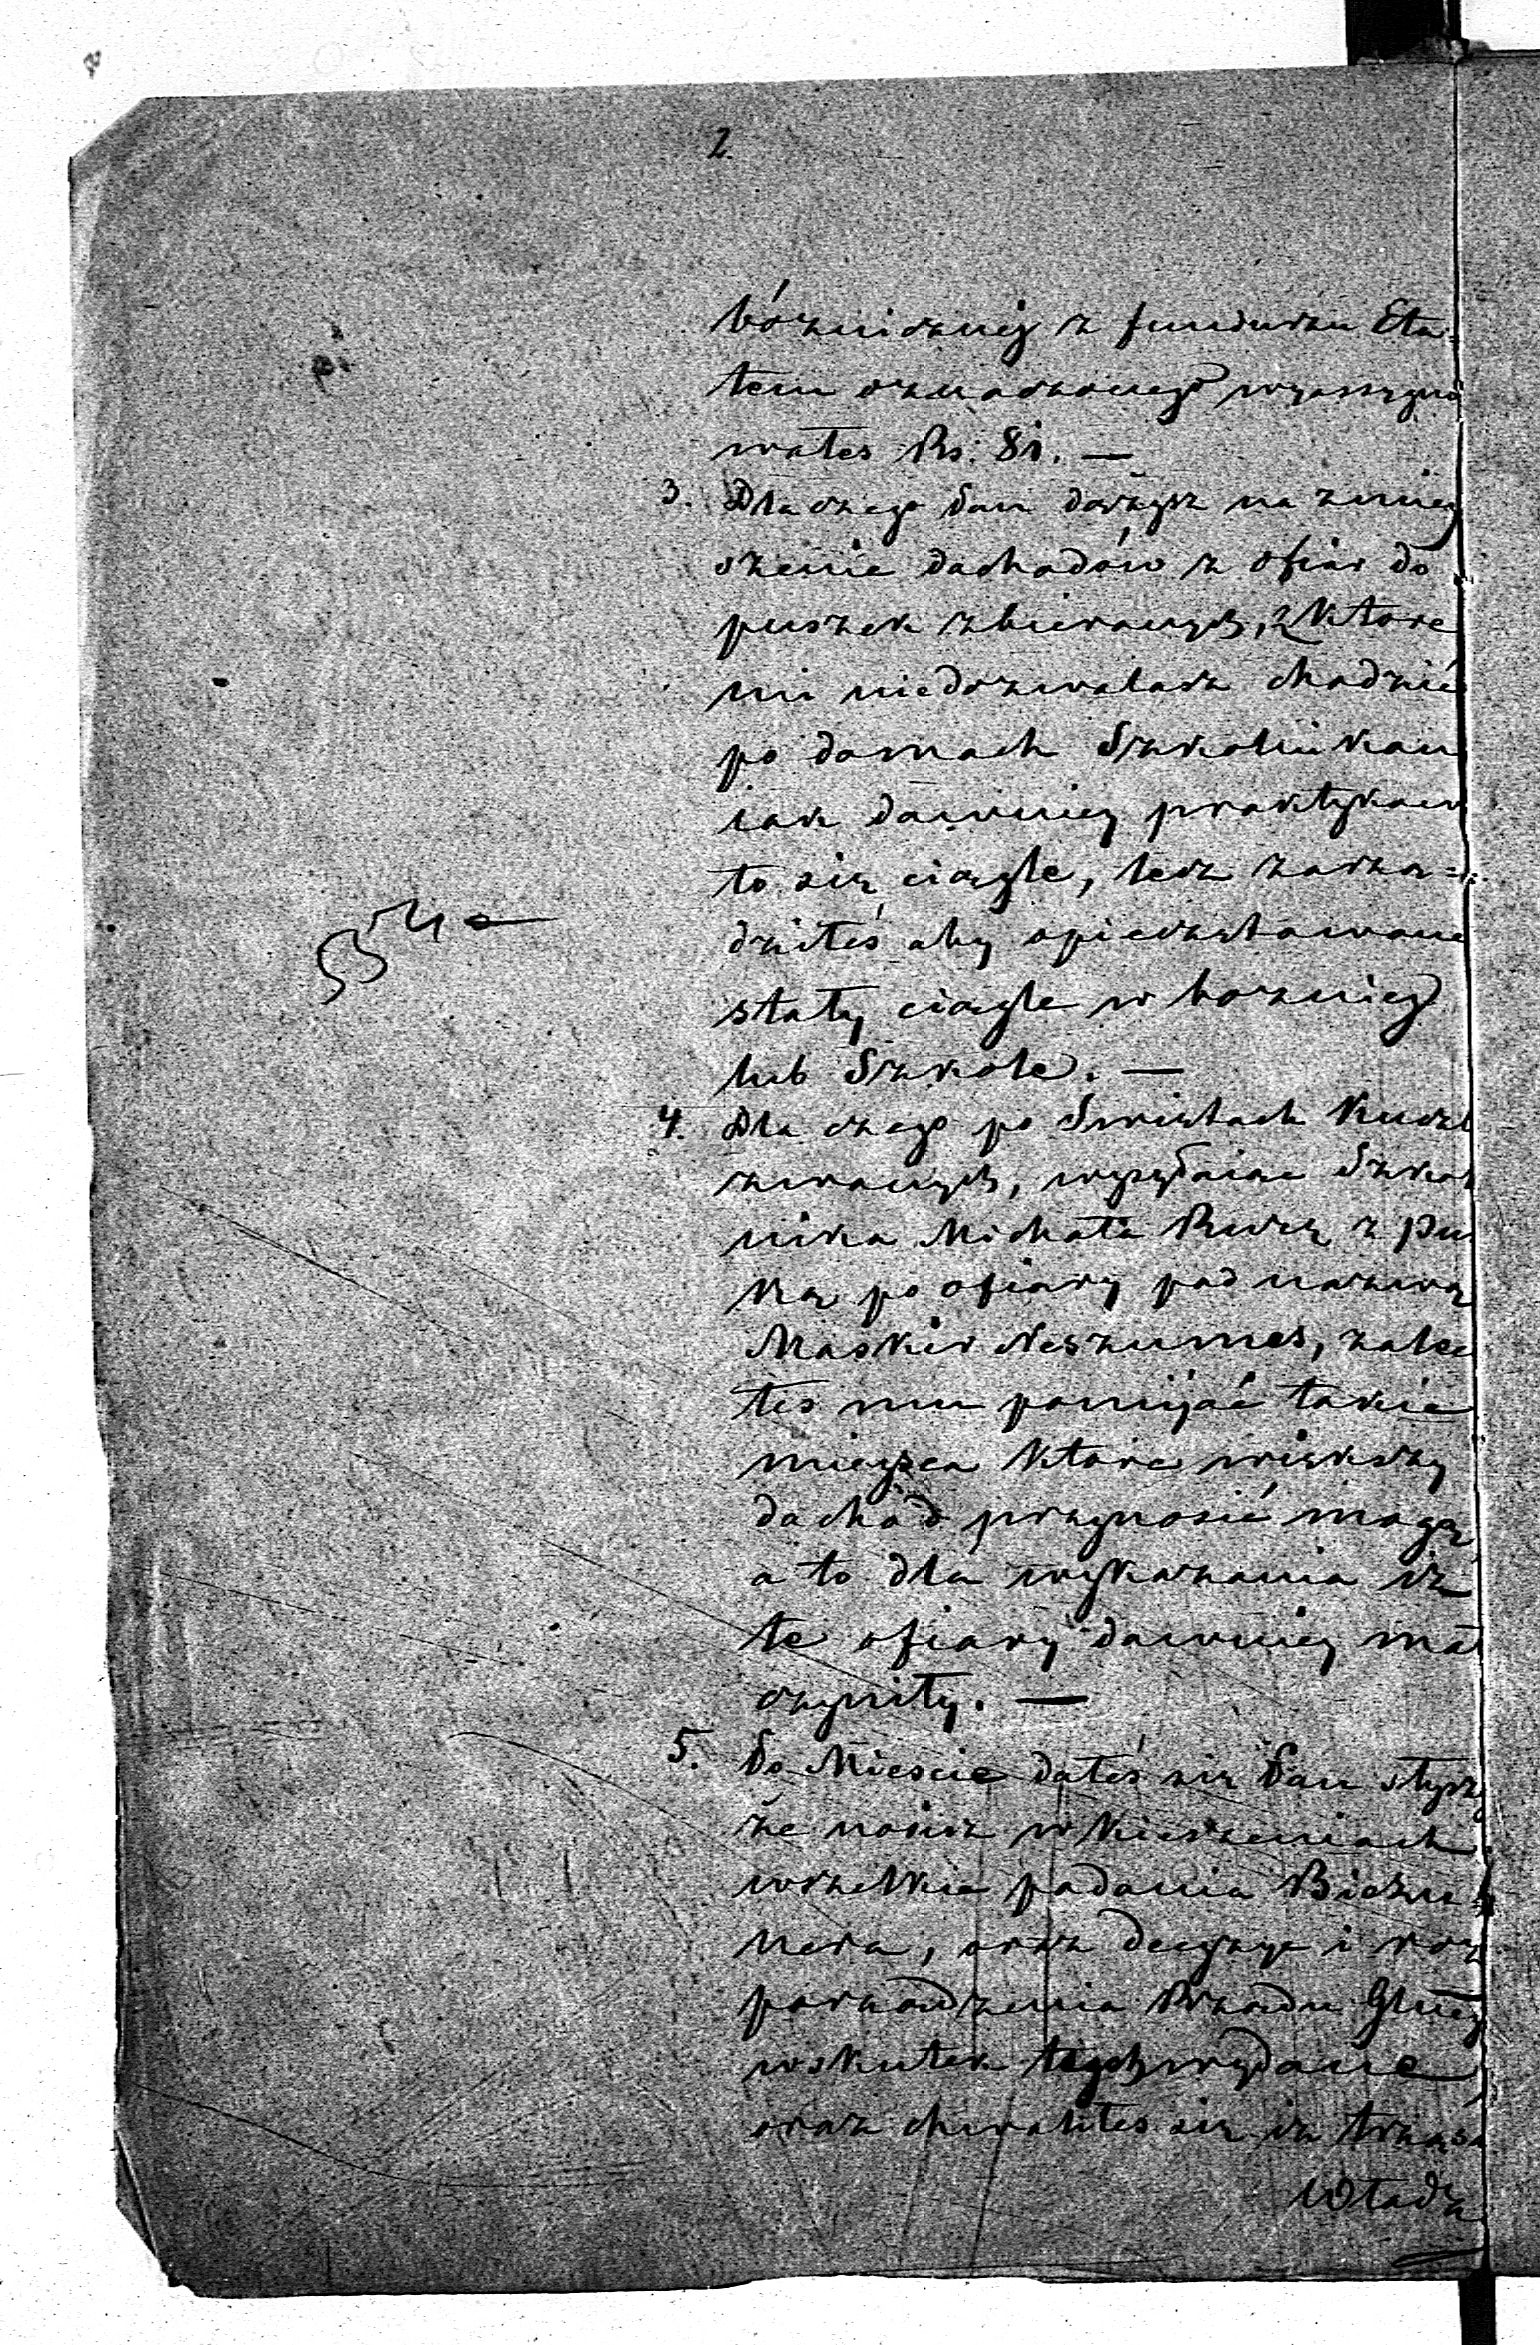 2.
bóżnicznéj z funduszu Eta-
tem oznaczonego wyassygno
wałeś Rs: 81. —
3. Dla czego Pan dążysz na zmniey
szenie dochodów z ofiar do
puszek zbieranych, z które
mi niedozwalasz chodzić
po domach Szkolnikom
iak dawniey praktykow
ło się ciągle, lecz zarzą=
dziłeś aby opieczętowane
stały ciągle w bożnicy
lub Szkole. —
4. Dla czego po Swiętach Kucz
zwanych, wysyłaiąc Szkol
nika Michała Rusą z pu
ką po ofiary pod nazwą
Maskir Neszumes, zalec
łeś mu pomijać takie
mieysca które większy
dochód przynosić mogą
a to dla wykazania iż
te ofiary dawniey mał
czyniły. —
5. Po Mieście dałeś się Pan słysz
że nosisz w kieszeniach
wszelkie podania Bieżu
nera, oraz decyzye i roz
porządzenia Rządu Glneg
wskutek tychwydane
oraz chwaliłeś się iż trzęsi
Władz